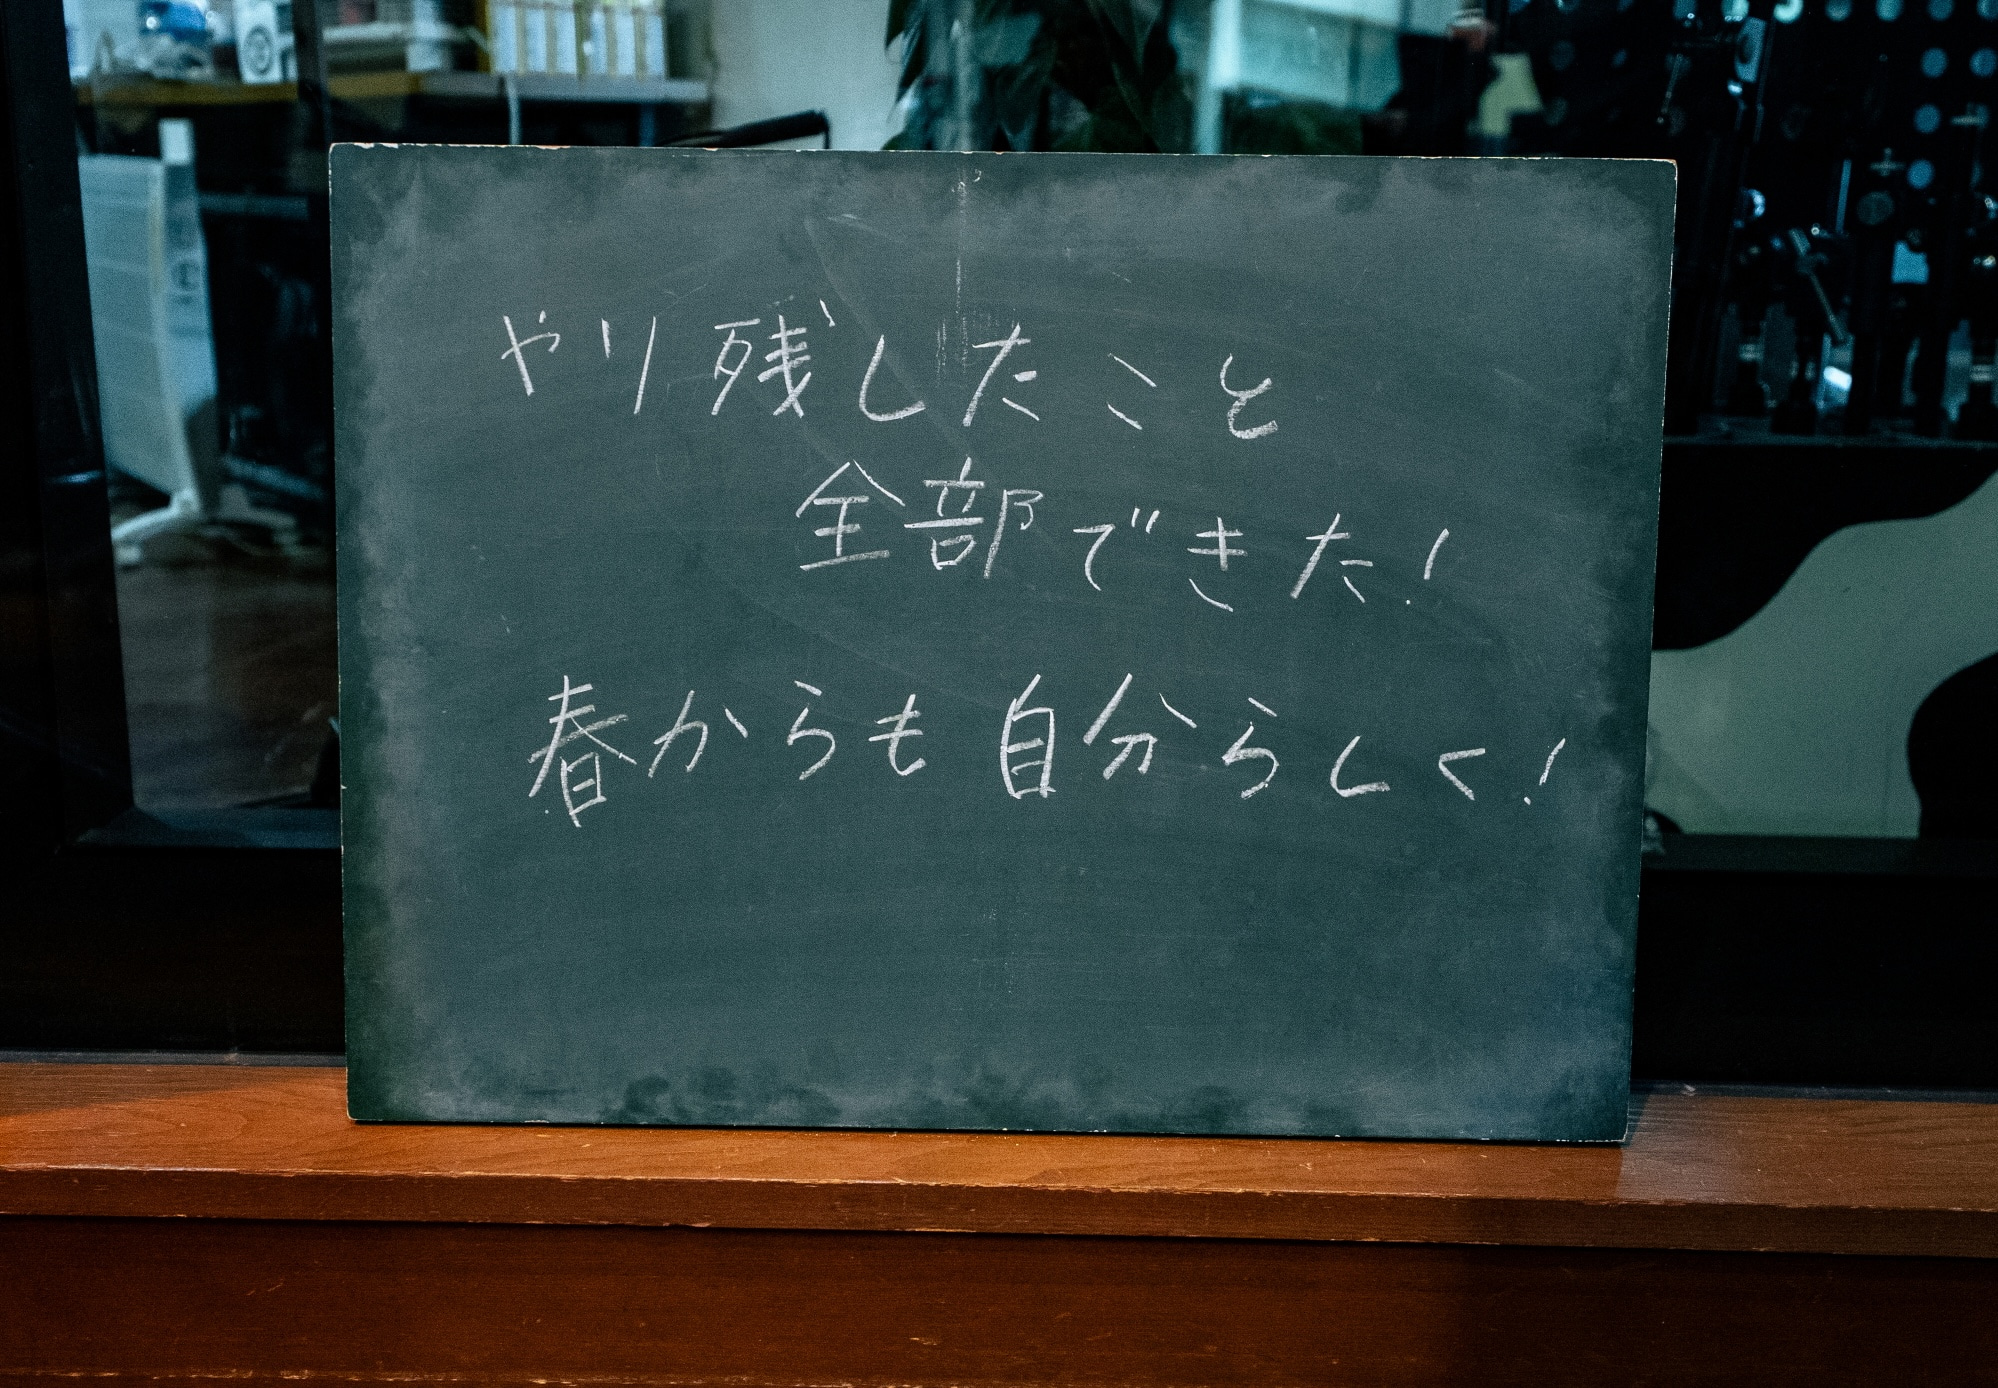 やり残したこと
全部できた!
春からも自分らしく!